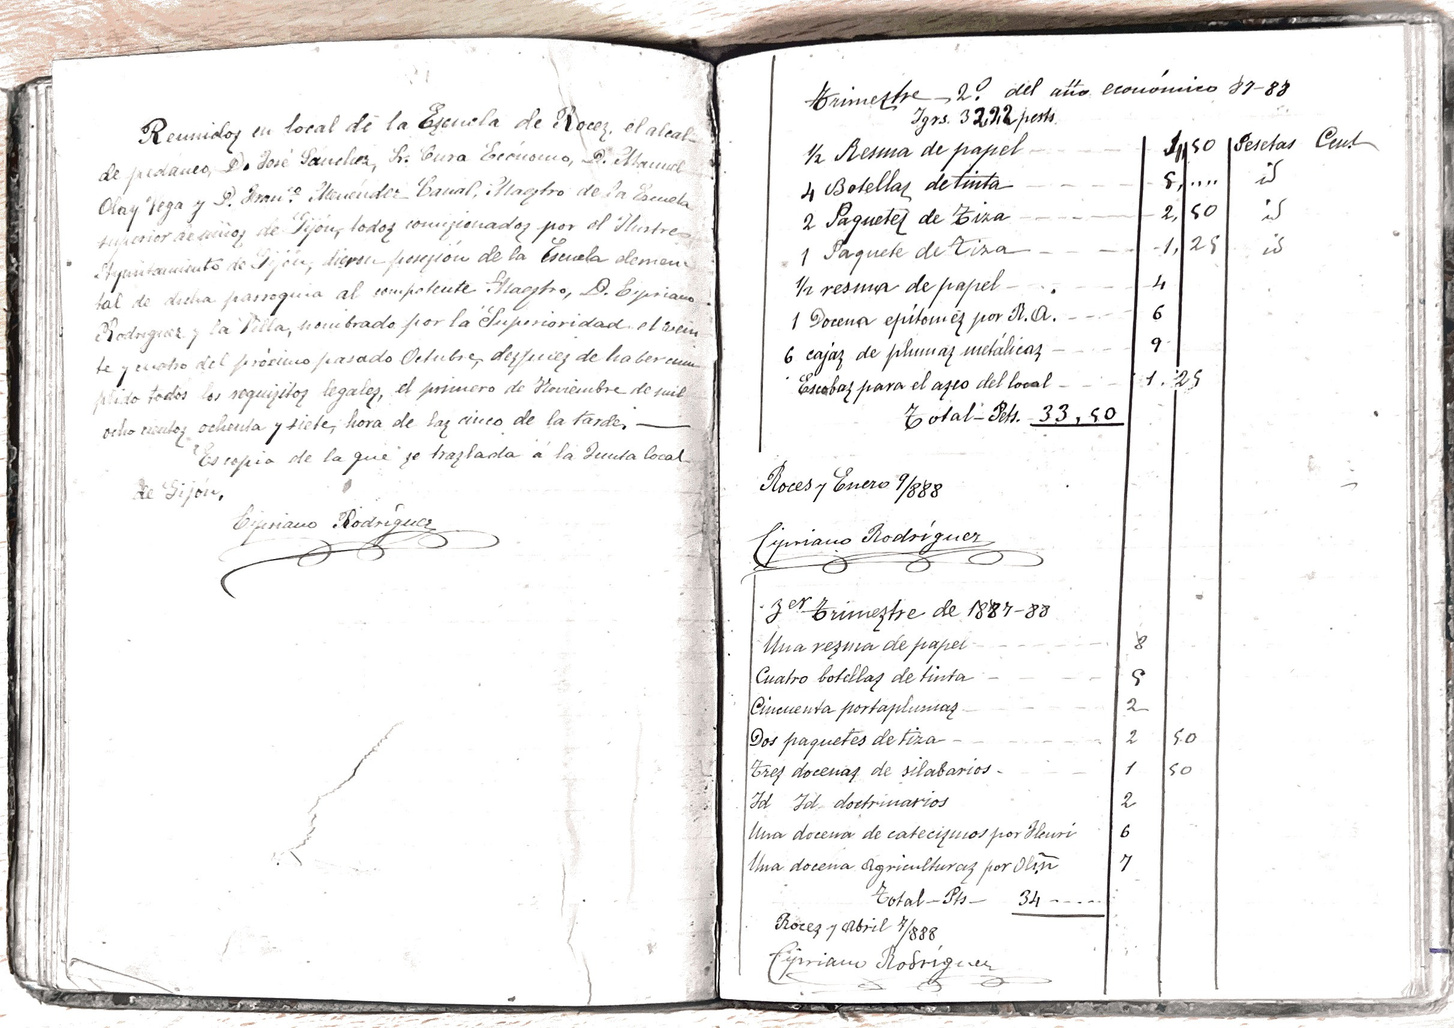 Reunidos en local de la Escuela de Roces, el alcal-
de pedáneo, D. José Sánchez, Sr. Cura Ecónomo, D. Manuel
Olay Vega y D. Fran.co Menéndez Canal, Maestro de la Escuela
superior de niños de Gijón, todos comisionados por el Ilustre
Ayuntamiento de Gijón, dieron posesión de la Escuela elemen-
tal de dicha parroquia al competente Maestro, D. Cipriano
Rodríguez y la Villa, nombrado por la Superioridad el vein-
te y cuatro del próximo pasado Octubre, despues de haber cum-
plido todos los requisitos legales, el primero de Noviembre de mil
ocho cientos ochenta y siete, hora de las cinco de la tarde. —
Es copia de la que se traslada á la Junta local
de Gijón.
Cipriano Rodríguez
Trimestre — 2º del año económico 87-88
½ Resma de papel 1,50 Pesetas Cent
4 Botellas de tinta 5,.... id
2 Paquetes de Tiza 2,50 id
1 Paquete de Tiza 1,25 id
½ resma de papel 4
1 Docena epítomes por R.A. 6
6 cajas de plumas metálicas 9
Escobas para el aseo del local 1.25
Total - Pets. 33,50
Roces y Enero 9/888
Cipriano Rodríguez
3er Trimestre de 1887-88
Una resma de papel 8
Cuatro botellas de tinta 5
Cincuenta portaplumas 2
Dos paquetes de tiza 2 50
Tres docenas de silabarios 1 50
Id Id doctrinarios 2
Una docena de catecismos por Fleuri 6
Una docena Agriculturas por 7
Total - Pts - 34 ----
Roces y Abril 7/888
Cipriano Rodríguez